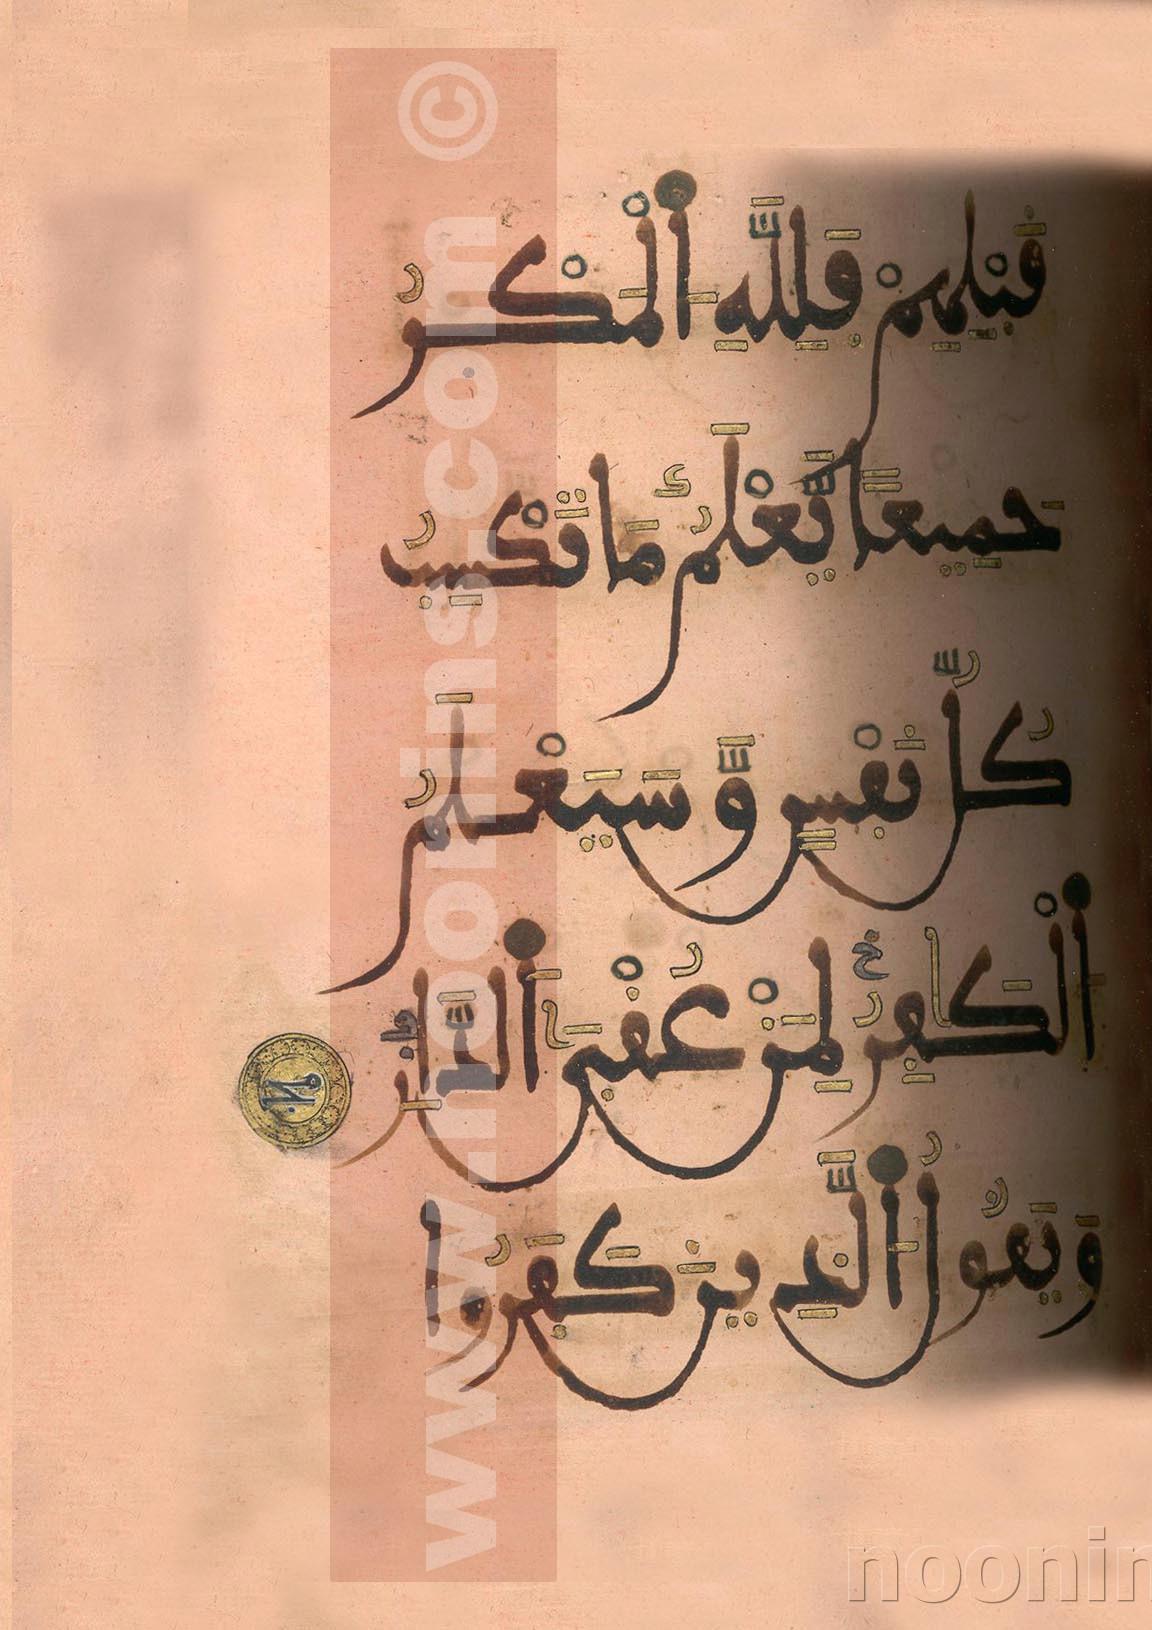 قَبْلِهِمْ فَلِلَّهِ ٱلْمَكْرُ
جَمِيعًا يَّعْلَمُ مَا تَكْسِبُ
كُلُّ نَفْسٍ وَّسَيَعْلَمُ
ٱلْكَٰفِرُ لِمَنْ عُقْبَى ٱلدَّارِ
وَيَقُولُ ٱلَّذِينَ كَفَرُوا
www.noonins.com ©
noonin